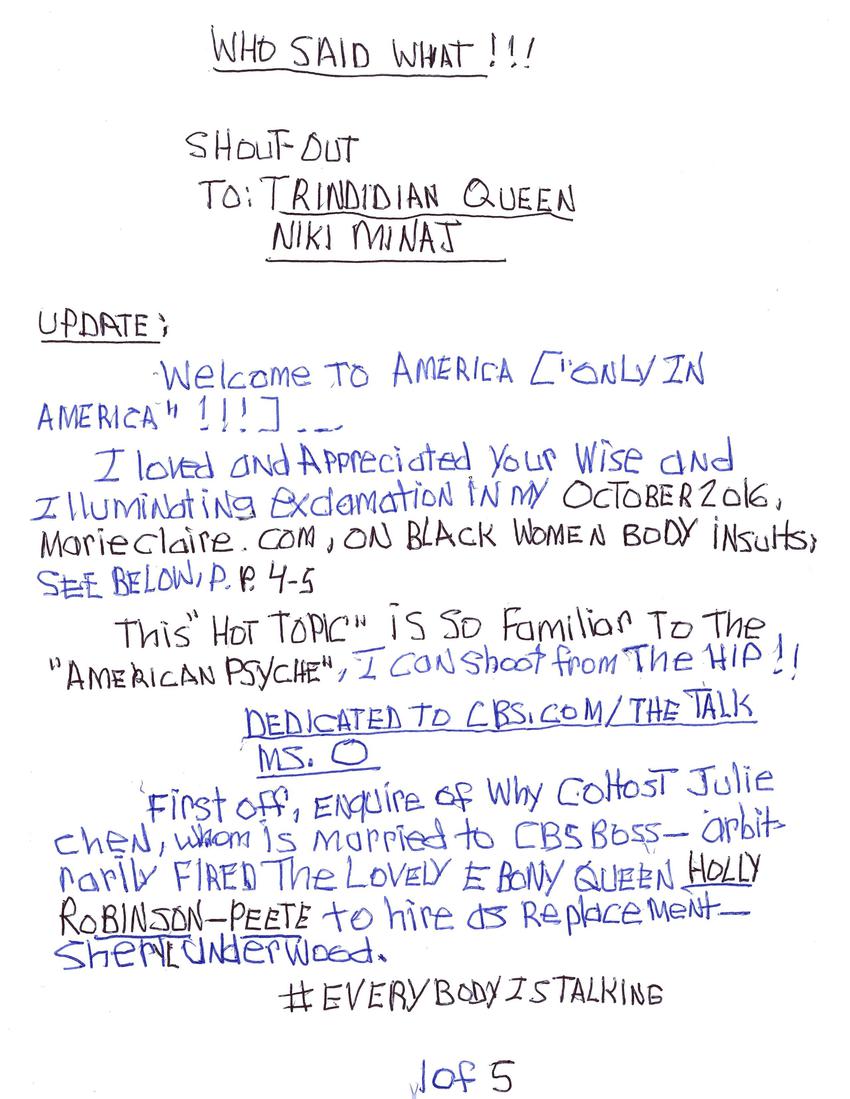 WHO SAID WHAT!!!
SHOUT-OUT
TO: TRINDIDIAN QUEEN
NIKI MINAJ
UPDATE;
Welcome TO AMERICA ["ONLY IN
AMERICA" !!!] ...
I loved and Appreciated your Wise and
Illuminating exclamation IN my OCTOBER 2016,
Marieclaire.com, ON BLACK WOMEN BODY insults;
SEE BELOW, P.P. 4-5
This "HOT TOPIC" is so Familiar To The
"AMERICAN PSYCHE", I can shoot from The HIP!!
DEDICATED TO CBS.COM/THE TALK
MS. O
First off, ENquire of Why COHOST Julie
CheN, whom is married to CBS BOSS— arbit-
rarily FIRED The LOVELY EBONY QUEEN HOLLY
ROBINSON-PEETE to hire as Replacement—
Sheryl Underwood.
#EVERYBODYISTALKING
1 of 5